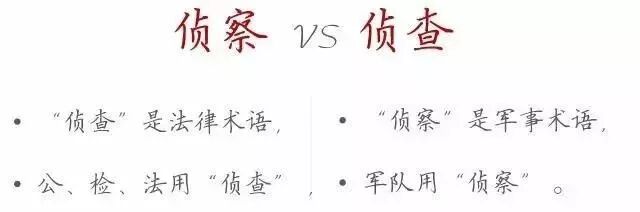 侦察 vs 侦查
• “侦查”是法律术语,
• 公、检、法用“侦查”,
• “侦察”是军事术语,
• 军队用“侦察”。